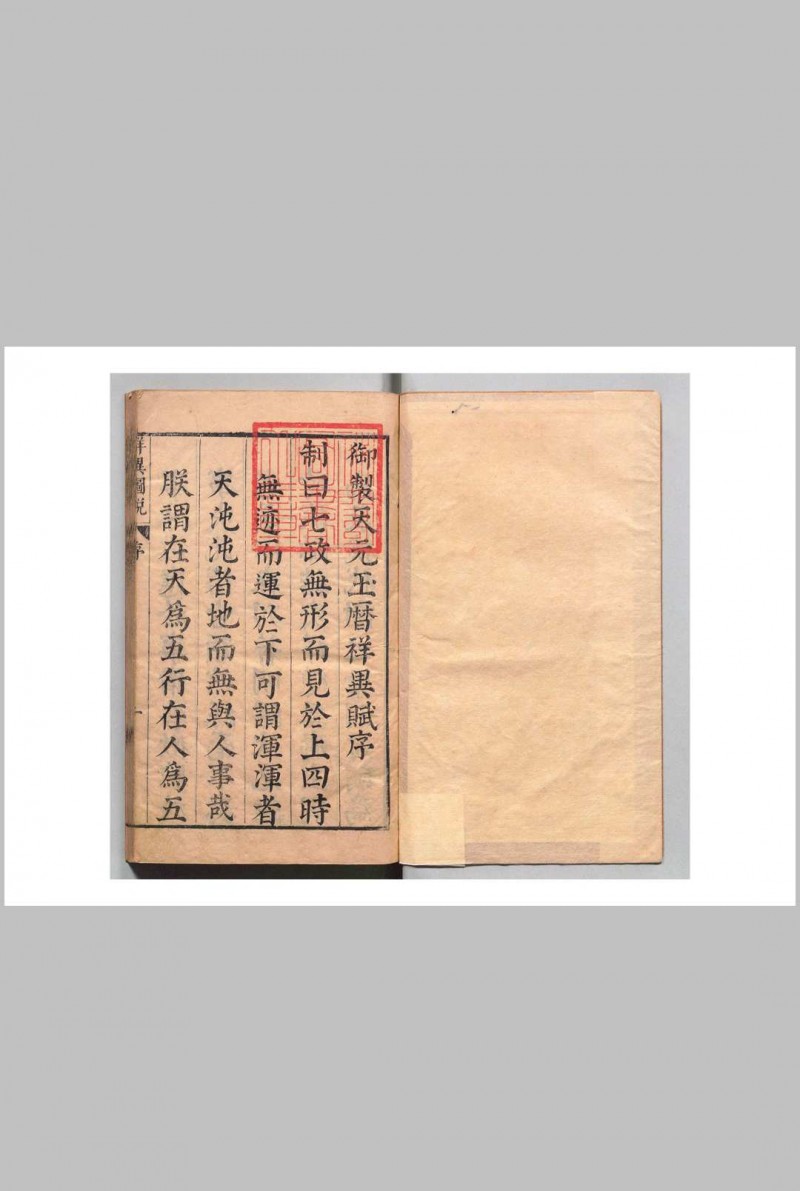 御製天元玉曆祥異賦序
制曰七政無形而見於上四時
無迹而運於下可謂渾渾者
天沌沌者地而無與人事哉
朕謂在天爲五行在人爲五
祥異圖說
序
一